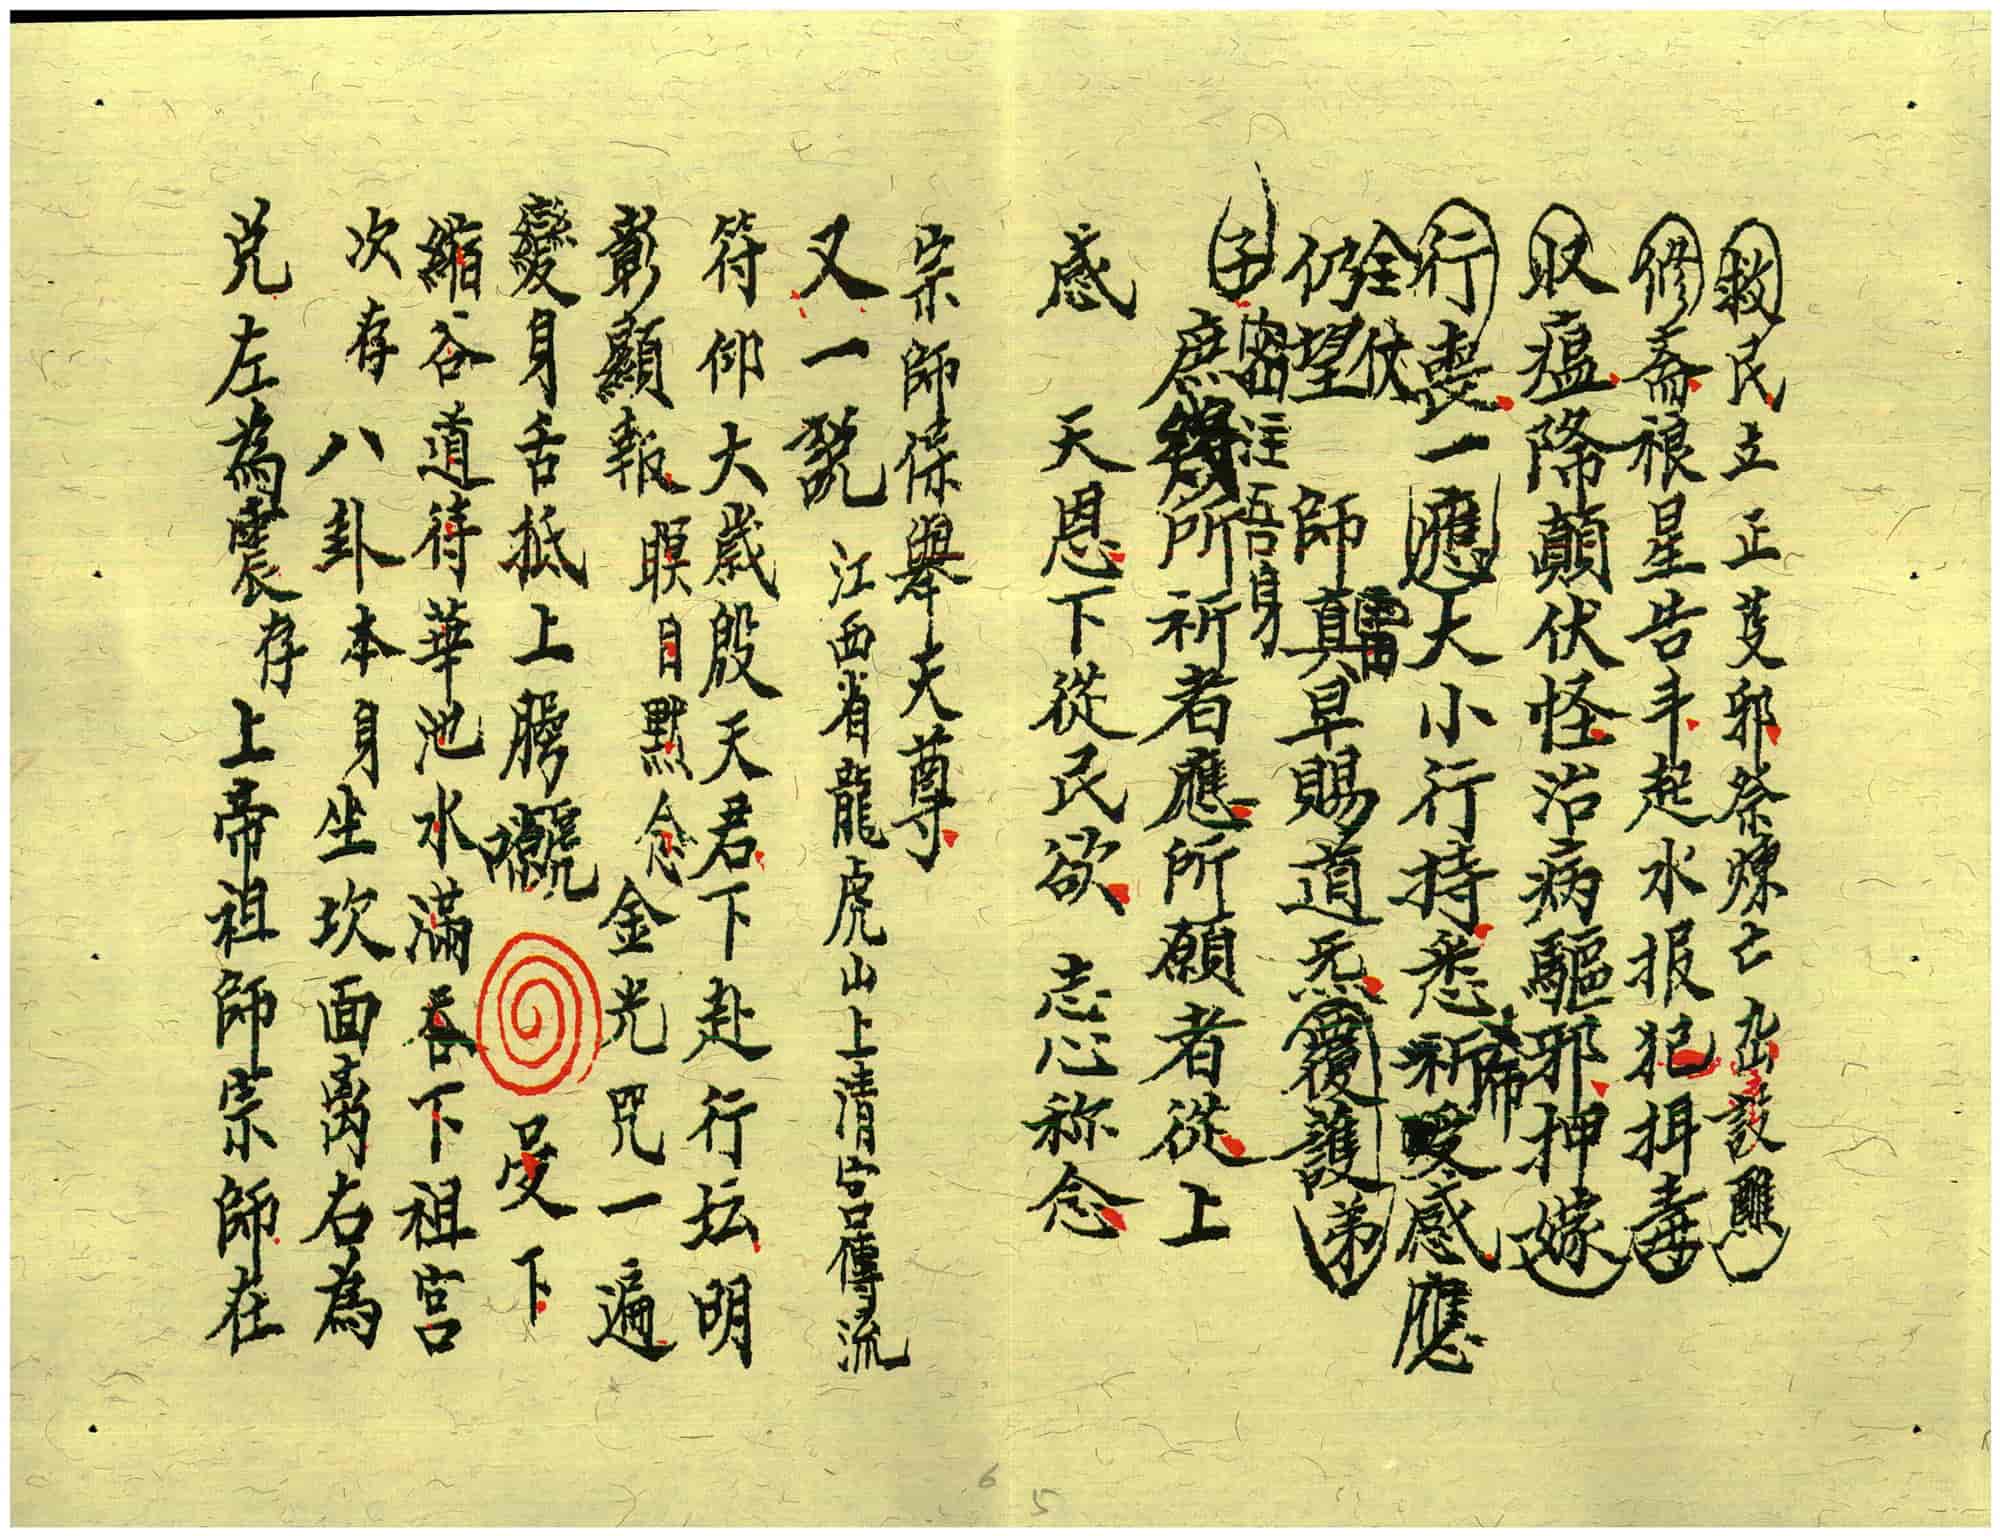 救民立正芟邪祭煉亡出設醮
修斋禳星告斗起水报犯揖毒
収瘟降顛伏怪治病驅邪押嫁
行喪一應大小行持悉祈感應
全伏雷
仍望師真早賜道炁覆護弟
子密注吾身
庶幾所祈者應所願者從上
感天恩下從民欲志心称念
宗師保舉天尊
又一說江西省龍虎山上清宮傳流
符仰大歲殷天君下赴行坛明
彰顯報瞑目默念金光咒一遍
變身舌抵上腭受下
縮谷道待華池水滿吞下祖宮
次存八卦本身坐坎面离右為
兑左為震存上帝祖師宗師在
6
5